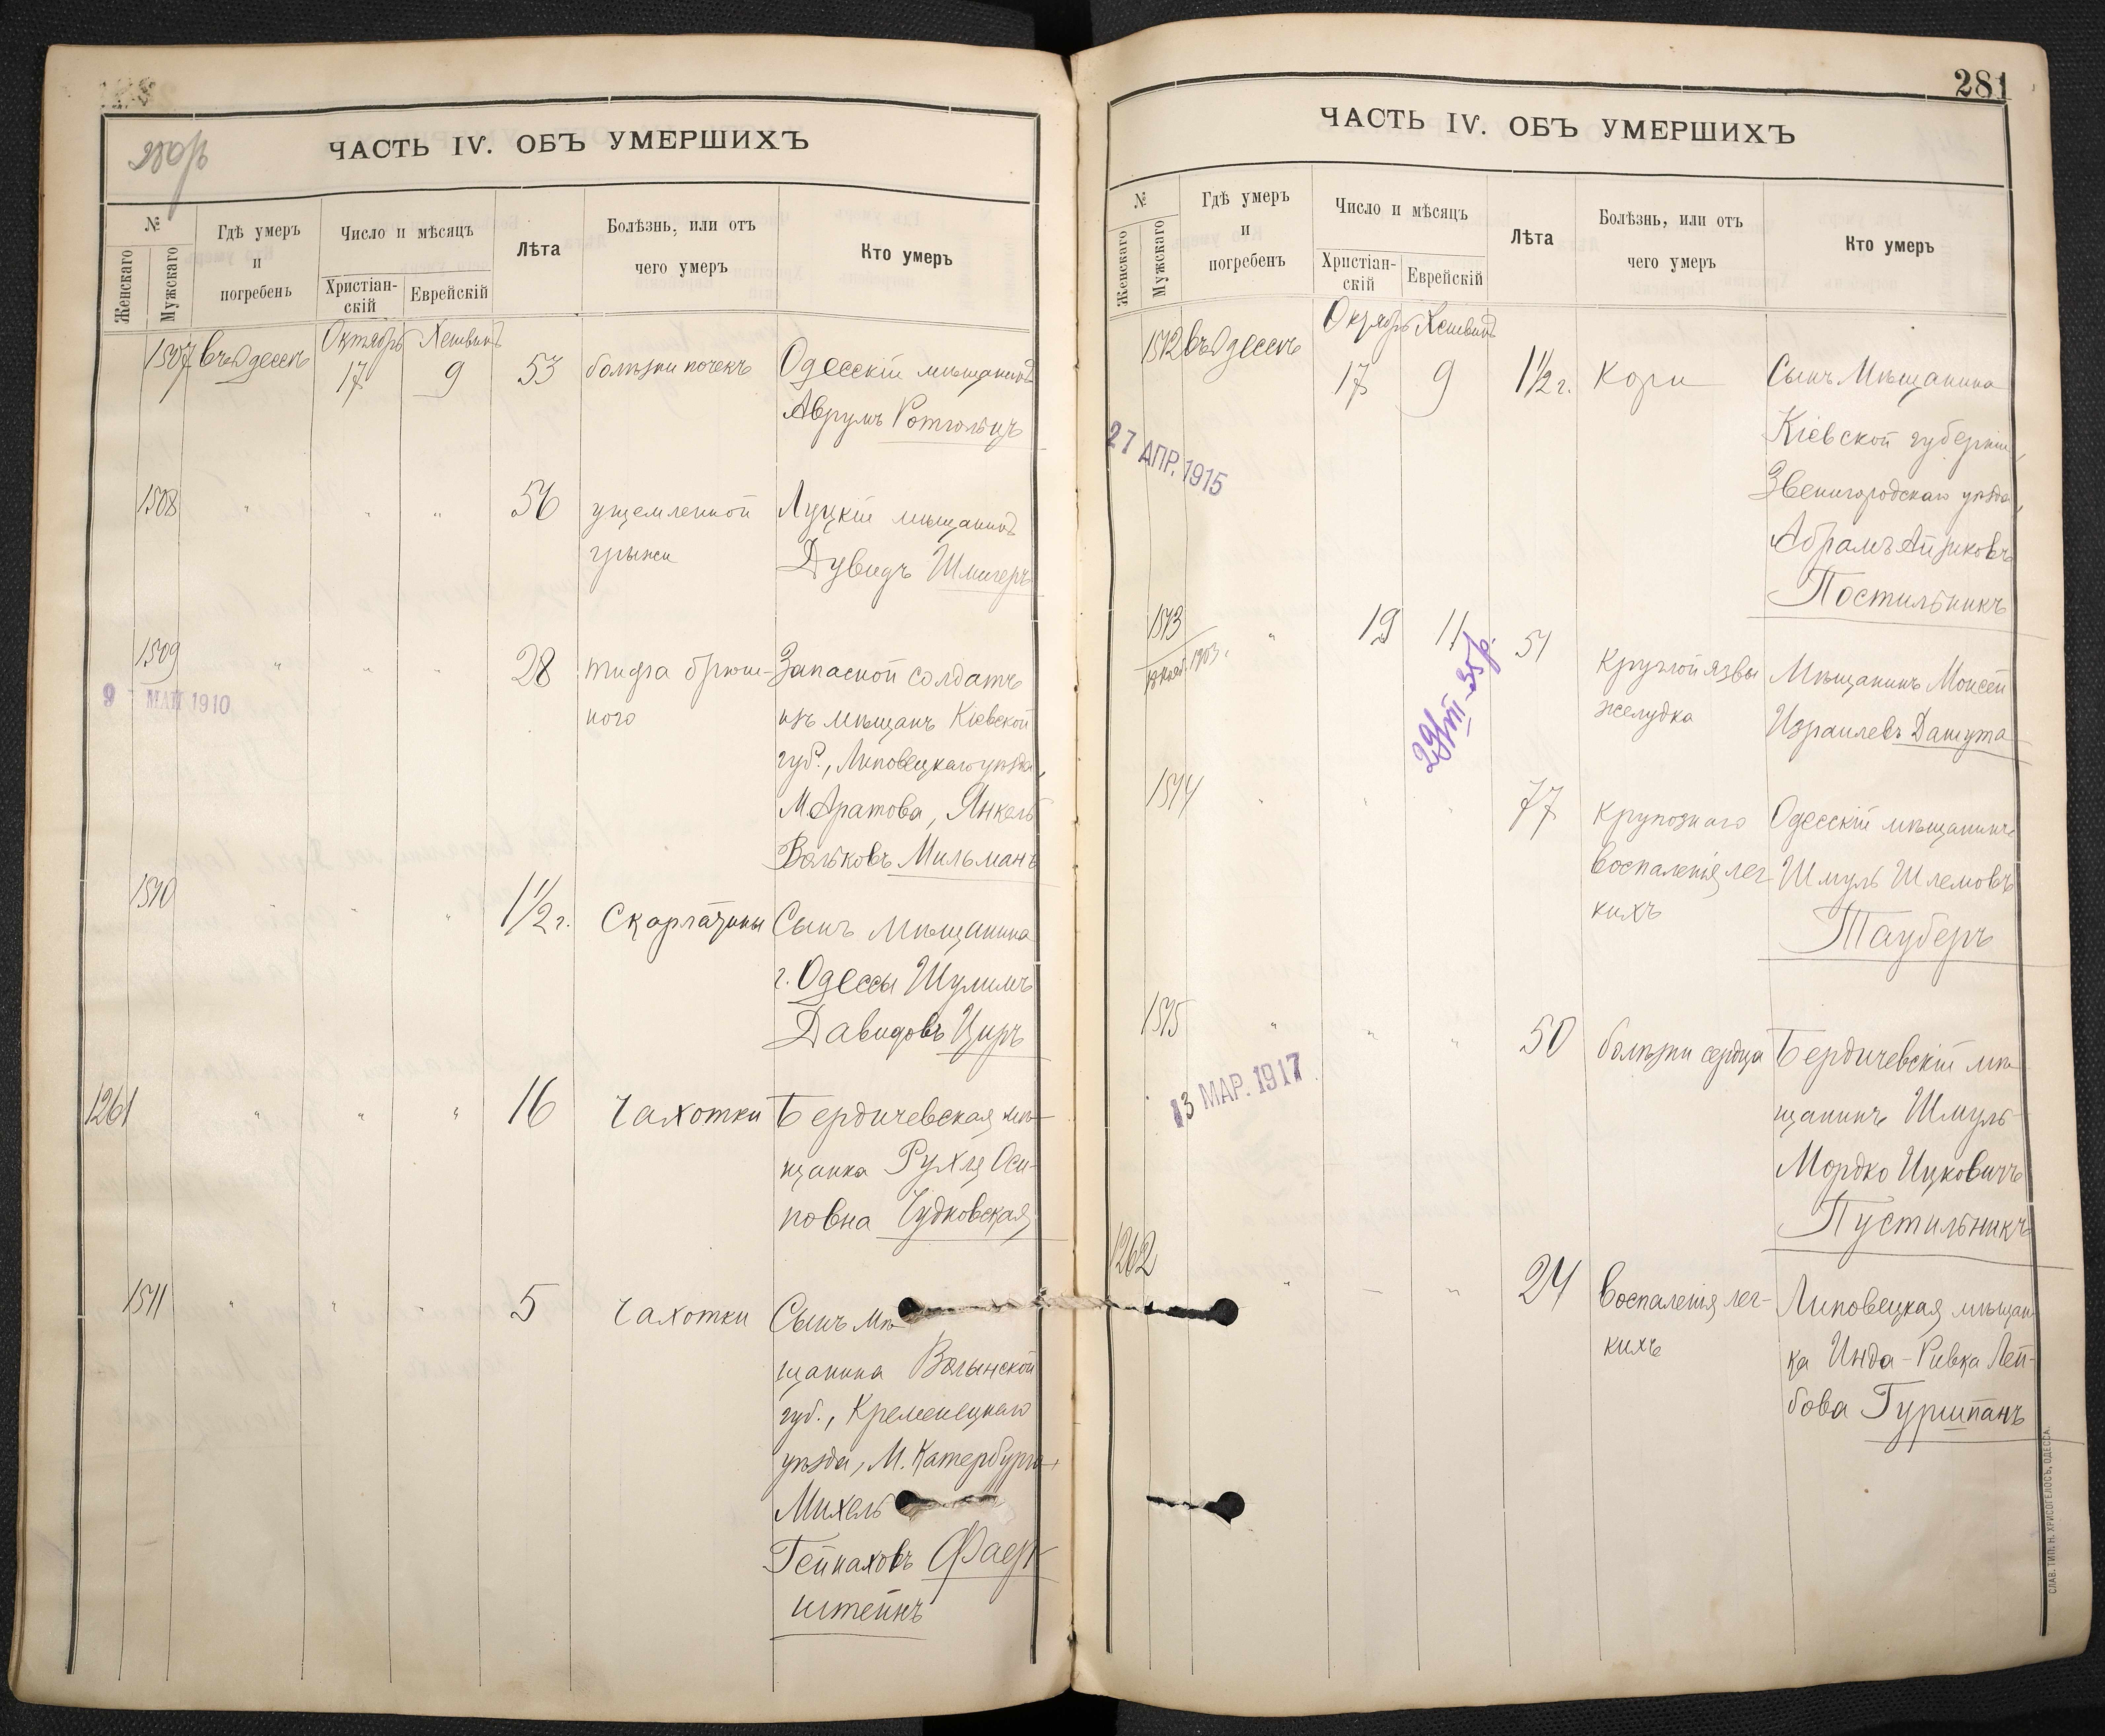 280 р
ЧАСТЬ IV. ОБЪ УМЕРШИХЪ
№
Женскаго
Мужскаго
Гдѣ умеръ
и
погребенъ
Число и мѣсяцъ
Христіан-
скій
Еврейскій
Лѣта
Болѣзнь, или отъ
чего умеръ
Кто умеръ
Октябрь Хешвинъ
1507 въ Одессѣ 17 9 53 болѣзни почекъ Одесскій мѣщанинъ
Аврумъ Ротгольцъ
1508 " " " 56 ущемленной Луцкій мѣщанинъ
грыжи Дувидъ Шмигеръ
1509 " " " 28 тифа брюш- Запасной солдатъ
9 МАЙ 1910
ного изъ мѣщанъ Кіевской
губ., Липовецкаго уѣзда,
М. Аратова, Янкель
Вольковъ Мильманъ
1510 " " " 1 1/2 г. Скарлатины Сынъ мѣщанина
г. Одессы Шулимъ
Давидовъ Циръ
1261 " " " 16 Чахотки Бердичевская мѣ-
щанка Рухля Оси-
повна Чудновская
1511 " " " 5 Чахотки Сынъ мѣ-
щанина Волынской
губ., Кременецкаго
уѣзда, М. Катербурга,
Михель
Гейнаховъ Фаер-
штейнъ
281
ЧАСТЬ IV. ОБЪ УМЕРШИХЪ
№
Женскаго
Мужскаго
Гдѣ умеръ
и
погребенъ
Число и мѣсяцъ
Христіан-
скій
Еврейскій
Лѣта
Болѣзнь, или отъ
чего умеръ
Кто умеръ
Октябрь Хешвинъ
1512 въ Одессѣ 17 9 1 1/2 г. Кори Сынъ Мѣщанина
Кіевской губерніи,
27 АПР. 1915
Звенигородскаго уѣзда,
Абрамъ Айзиковъ
Постильникъ
1513 " 19 11 51 Круглой язвы Мѣщанинъ Моисей
1903 г.
желудка Израилевъ Дашута
29/VIII-35р.
1514 " " " 77 Крупознаго Одесскій мѣщанинъ
воспаленія лег- Шмуль Шлемовъ
кихъ Тауберъ
1515 " " " 50 болѣзни сердца Бердичевскій мѣ-
13 МАР. 1917
щанинъ Шмуль
Мордко Ицковичъ
Пустильникъ
1262 " — " 24 Воспаленія лег- Липовецкая мѣщан-
кихъ ка Инда-Ривка Лей-
бова Гуршпанъ
СЛАВ. ТИП. Н. ХРИСОГЕЛОСЪ, ОДЕССА.